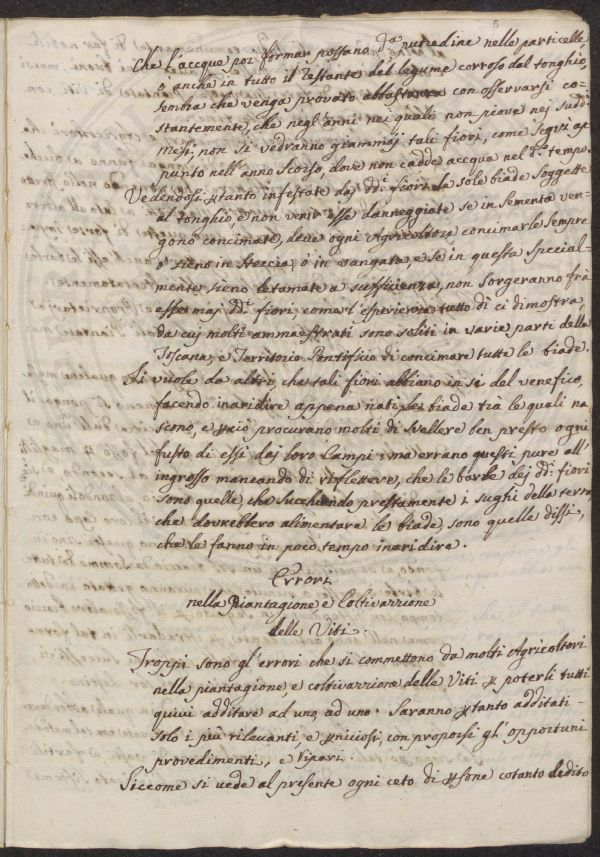 Che l'acque poi formar possano d.ª putredine nelle particelle,
o anche in tutto il restante del legume corroso dal tonghio,
sembra che venga provato abbastanza con osservarsi co-
stantemente, che negl'anni nei quali non piove nej sudd.ⁱ
mesi, non si vedranno giammaj tali fiori, come seguì ap-
punto nell'anno scorso, dove non cadde acqua nel d.º tempo.
Vedendosi ptanto infestate daj dd.ⁱ fiori le sole biade soggette
al tonghio, e non venir esse danneggiate se in sementa ven-
gono concimate, deve ogni Agricoltore concimarle sempre
o' sieno in steccia, o' in vangata, e se in questa special-
mente sieno letamate a sufficienza, non sorgeranno frà
esse maj dd.ⁱ fiori, come l'esperienza tutto dì ci dimostra,
da cuj molti ammaestrati sono soliti in varie parti della
Toscana, e Territorio Pontificio di concimare tutte le biade.
Si vuole da altri, che tali fiori abbiano in se del venefico,
facendo inaridire appena nati le biade trà le quali na-
scono, e pciò procurano molti di svellere ben presto ogni
fusto di essi daj loro Campi: ma errano questi pure all'
ingrosso mancando di riflettere, che le barbe dej dd.ⁱ fiori
sono quelle, che succhiando prestamente i sughi della terra,
che dovrebbero alimentare le biade, sono quelle dissi,
che le fanno in poco tempo inaridire.
Errori
nella Piantagione, e Coltivazzione
delle Viti.
Troppi sono gl'errori che si commettono da molti Agricoltori
nella piantagione, e coltivazzione delle Viti p poterli tutti
quivi additare ad uno, ad uno. Saranno ptanto additati
solo i più rilevanti, e pniciosi, con proporsi gl'opportuni
provedimenti, e ripari.
Siccome si vede al presente ogni ceto di psone cotanto dedito